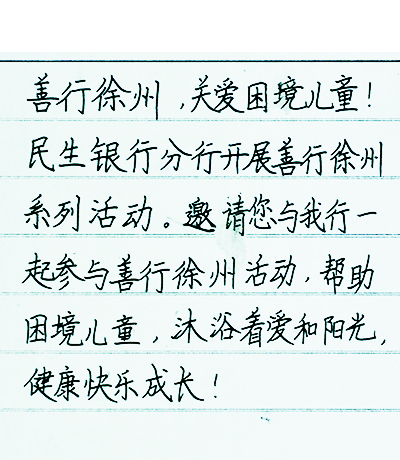 善行徐州,关爱困境儿童!
民生银行分行开展善行徐州
系列活动。邀请您与我行一
起参与善行徐州活动,帮助
困境儿童,沐浴着爱和阳光,
健康快乐成长!